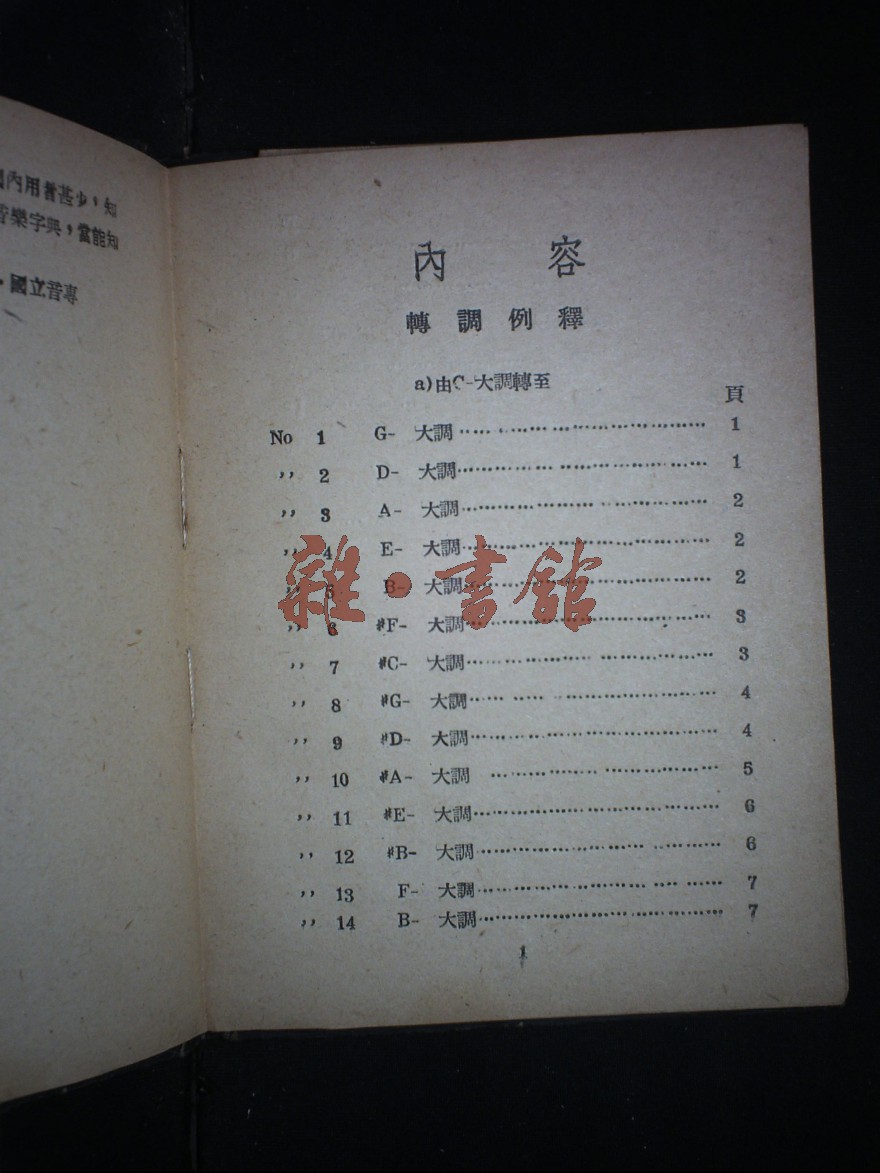 內用者甚少，知
音樂字典，當能知
·國立音專
內 容
轉調例釋
a)由C-大調轉至
頁
No 1 G- 大調 1
,, 2 D- 大調 1
,, 3 A- 大調 2
,, 4 E- 大調 2
,, 5 B- 大調 2
,, 6 #F- 大調 3
,, 7 #C- 大調 3
,, 8 #G- 大調 4
,, 9 #D- 大調 4
,, 10 #A- 大調 5
,, 11 #E- 大調 6
,, 12 #B- 大調 6
,, 13 F- 大調 7
,, 14 B- 大調 7
1
雜·書館